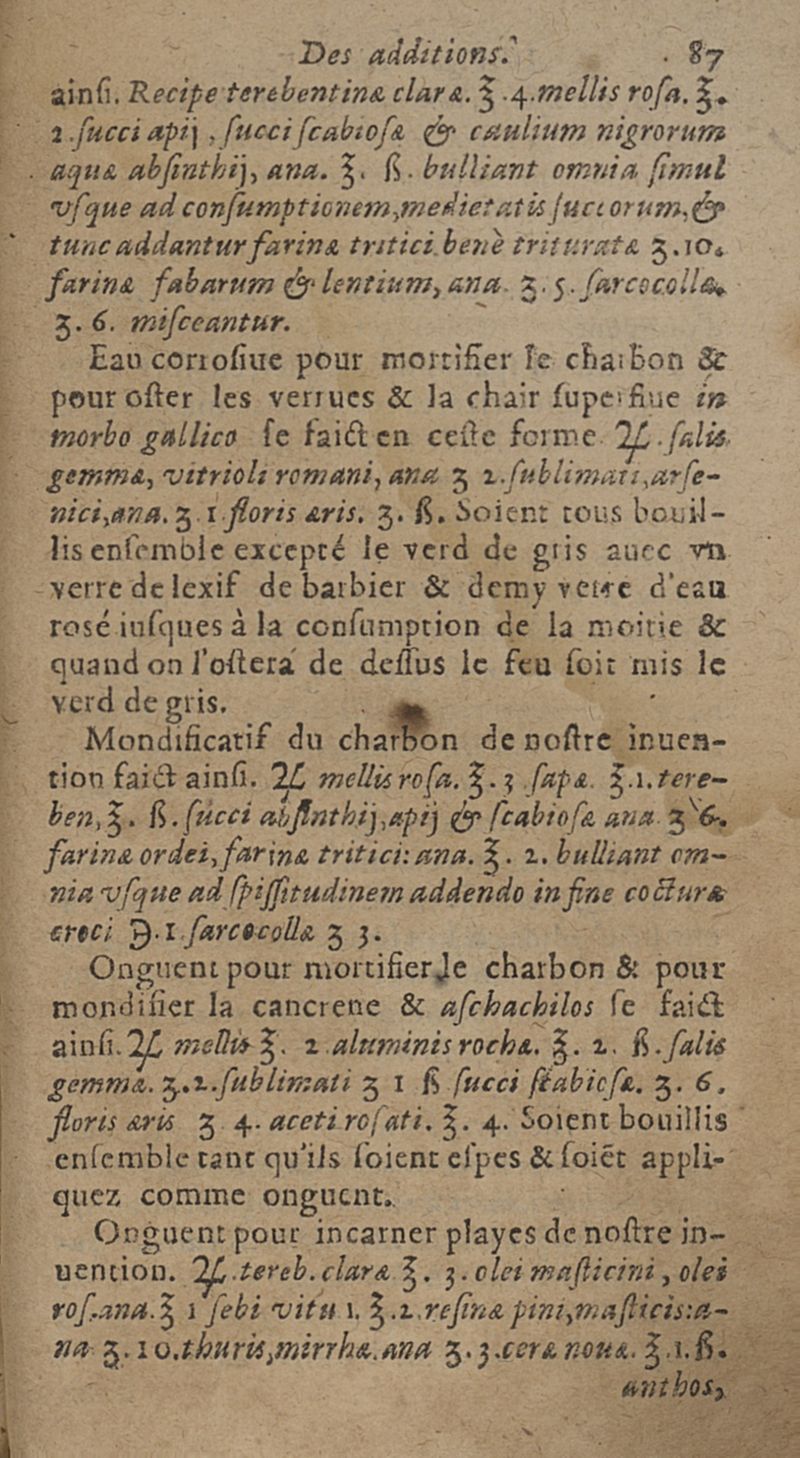 Des additions. 87
ainſi. Recipe terebentinæ claræ. ℥ .4.mellis roſa. ℥.
2.ſucci apij , ſucci ſcabioſæ & caulium nigrorum
aquæ abſinthij, ana. ℥. ß. bulliant omnia ſimul
vſque ad conſumptionem,medietatis ſuccorum,&
tunc addantur farinæ tritici bene trituratæ ʒ.10.
farinæ fabarum & lentium, ana. ʒ.5.ſarcocollæ
ʒ. 6. miſceantur.
Eau corroſiue pour mortifier le charbon &
pour oſter les verrues & la chair ſuperfiue in
morbo gallico ſe faict en ceſte forme. ♃.ſalis
gemmæ, vitrioli romani, ana ʒ 2.ſublimati,arſe-
nici,ana.ʒ.1 floris æris. ʒ. ß. Soient tous bouil-
lis enſemble excepté le verd de gris auec vn
verre de lexif de barbier & demy verre d'eau
rosé iuſques à la conſumption de la moitie &
quand on l'oſtera de deſſus le feu ſoit mis le
verd de gris.
Mondificatif du charbon de noſtre inuen-
tion faict ainſi. ♃ mellis roſa. ℥.3 ſapæ. ℥.1.tere-
ben,℥. ß.ſucci abſinthij,apij & ſcabioſæ ana ʒ 6.
farinæ ordei,farinæ tritici:ana.℥. 2. bulliant om-
nia vſque ad ſpiſſitudinem addendo in fine cocturæ
croci ℈.1.ſarcocollæ ʒ 3.
Onguent pour mortifier le charbon & pour
mondifier la cancrene & aſchachilos ſe faict
ainſi.♃ mellis ℥. 2.aluminis rochæ. ℥. 2. ß.ſalis
gemmæ. ʒ.2.ſublimati ʒ 1 ß ſucci ſcabioſæ. ʒ. 6.
floris æris ʒ 4. aceti roſati. ℥. 4. Soient bouillis
enſemble tant qu'ils ſoient eſpes & ſoiẽt appli-
quez comme onguent.
Onguent pour incarner playes de noſtre in-
uention. ♃.tereb.claræ ℥. 3.olei maſticini, olei
roſ.ana.℥ 1 ſebi vitu 1. ℥.2.reſinæ pini,maſticis:a-
na ʒ.10.thuris,mirrhæ.ana ʒ.3.ceræ nouæ. ℥.1.ß.
anthos,